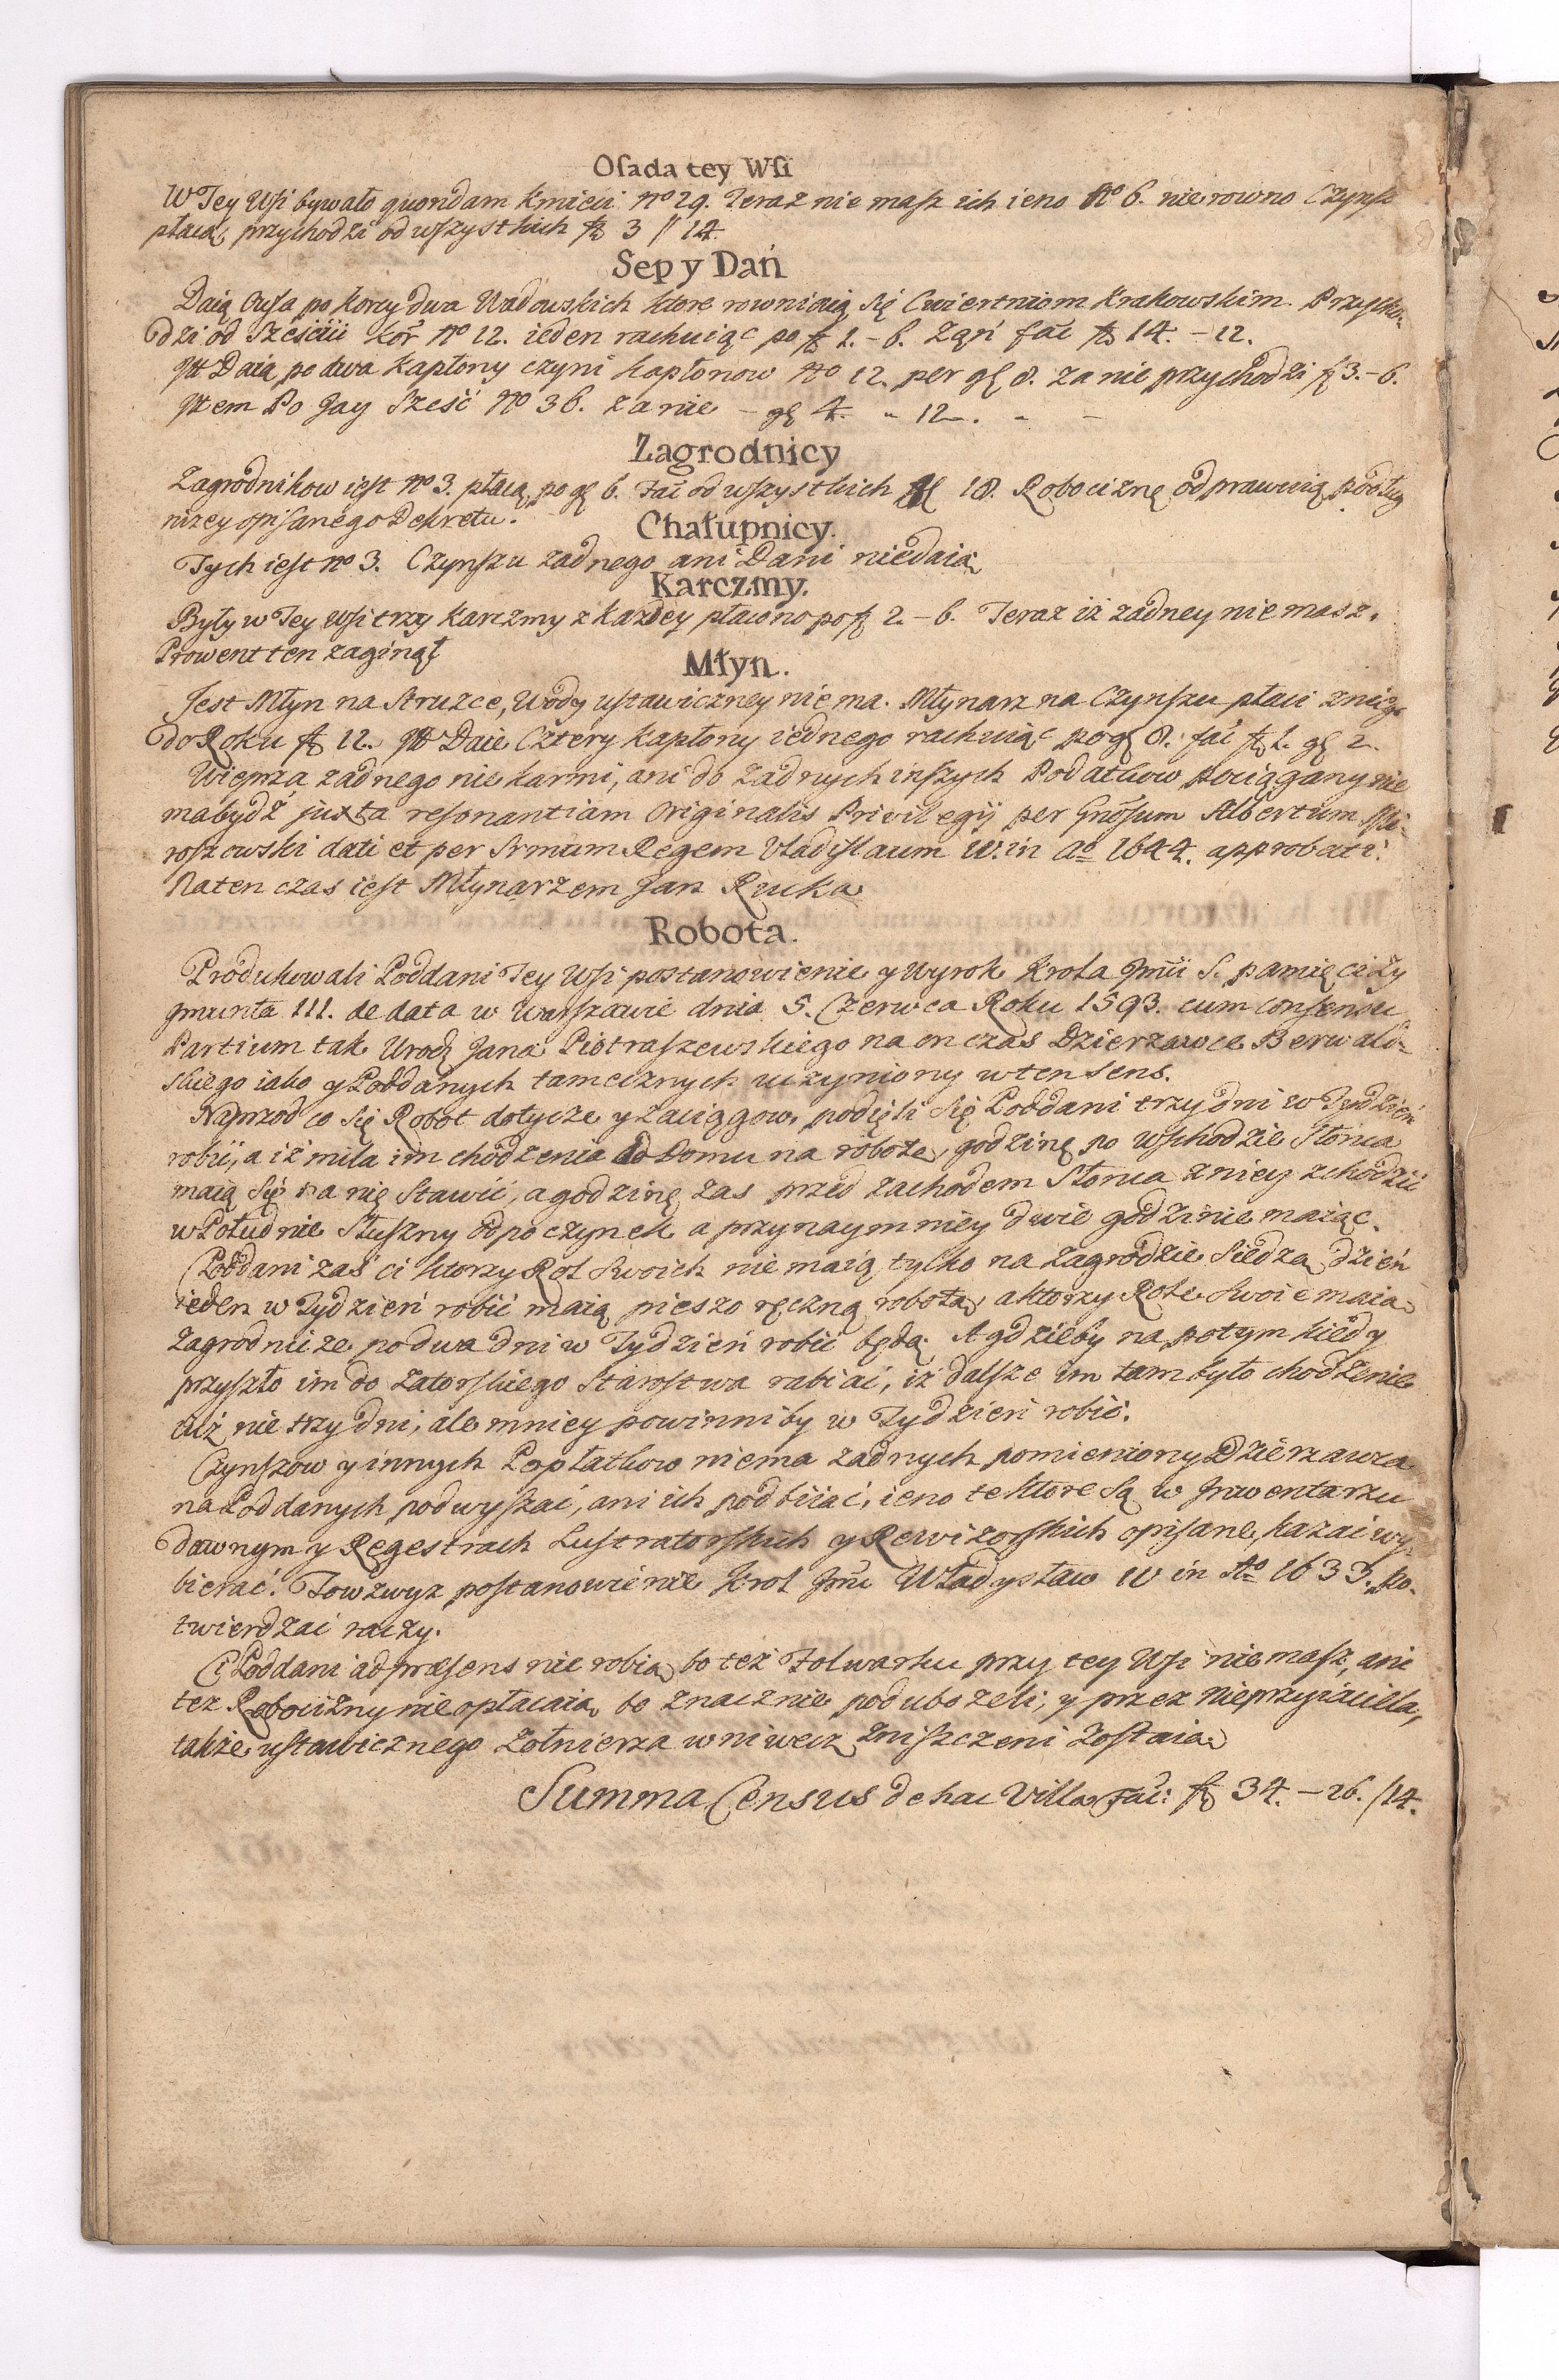 Osada tey Wsi
W Tey Wsi bywało quondam Kmieci No 29. Teraz nie masz ich ieno No 6. nie rowno Czynsz
płacą, przychodzi od wszystkich fl 3 // 14.
Sep y Dań
Daią Owsa po Korcy dwa Wadowskich ktore rownaią się Cwiertniom Krakowskim. Przycho-
dzi od Sześciu Kor No 12. ieden rachuiąc po fl 1. - 6. Zań fać fl 14. - 12.
Itt Daią po dwa Kapłony czyni Kapłonow No 12. per gł 8. za nie przychodzi fl 3. - 6.
Item Po Jay Sześć No 36. za nie - gł 4. - 12.
Zagrodnicy
Zagrodnikow iest No 3. płacą po gł 6. Fać od wszystkich gł 18. Robociznę odprawuią podług
nizey opisanego Dekretu.
Chałupnicy.
Tych iest No 3. Czynszu zadnego ani Dani niedaią
Karczmy.
Były w Tey Wsi trzy Karczmy z Kazdey płacono po fl 2. - 6. Teraz iż żadney nie masz.
Prowent ten zaginął
Młyn.
Jest Młyn na Struzce, Wody ustawiczney nie ma. Młynarz na Czynszu płaci z niego
do Roku fl 12. Itt Daie Cztery Kapłony iednego rachuiąc po gł 8. fać fl 1. gł 2.
Wieprza zadnego nie karmi, ani do Zadnych inszych Podatkow pociągany nie
ma bydź juxta resonantiam Originalis Privilegij per Gnosum Albertum Mi-
roszowski dati et per Srmum Regem Vladislaum IV. in Ao 1644. approbati.
Na ten czas iest Młynarzem Jan Rzuka
Robota.
Produkowali Poddani Tey Wsi postanowienie y Wyrok Krola Jmci S. pamięci Zy
gmunta III. de data w Warszawie dnia 5. Czerwca Roku 1593. cum Consensu
Partium tak Urodz Jana Piotraszewskiego na on czas Dzierzawce Berwald-
skiego iako y Poddanych tamecznych uczyniony w ten Sens.
Naprzod co się Robot dotycze y zaciągow, podięli się Poddani trzy dni w Tydzien
robić, a iż mila im chodzenia od Domu na robotę, godzinę po wschodzie Słonca
maią się na nię Stawić, a godzinę zas przed zachodem Słonca z niey zchodzić
w Południe Słuszny odpoczynek a przynaymniey dwie godzinie maiąc.
Poddani zaś ci ktorzy Rol Swoich nie maią tylko na zagrodzie Siedzą dzień
ieden w Tydzień robić maią pieszo ręczną robotą, a ktorzy Role Swoie maią
Zagrodnicze po dwa dni w Tydzień robić będą. A gdzieby na potym kiedy
przyszło im do Zatorskiego Starostwa rabiać, iż dalsze im tam było chodzenie
iuż nie trzy dni, ale mniey powinniby w Tydzień robić.
Czynszow y innych Popłatkow niema zadnych pomieniony Dzierzawca
na Poddanych podwyszać, ani ich podbiiać, ieno te ktore są w Inwentarzu
dawnym y Regestrach Lustratorskich y Rewizorskich opisane, kazać wy-
bierać. To wzwyz postanowienie Krol Jmć Władysław IV in Ao 1633. po-
twierdzać raczy.
Ci Poddani ad præsens nie robią bo też Folwarku przy tey Wsi nie masz, ani
tez Robocizny nie opłacaią bo znacznie podubozeli, y przez nieprzyiaciela,
także ustawicznego Zołnierza wniwecz zniszczeni zostaią
Summa Census de hac Villa Fać: fl 34. - 26. /14.